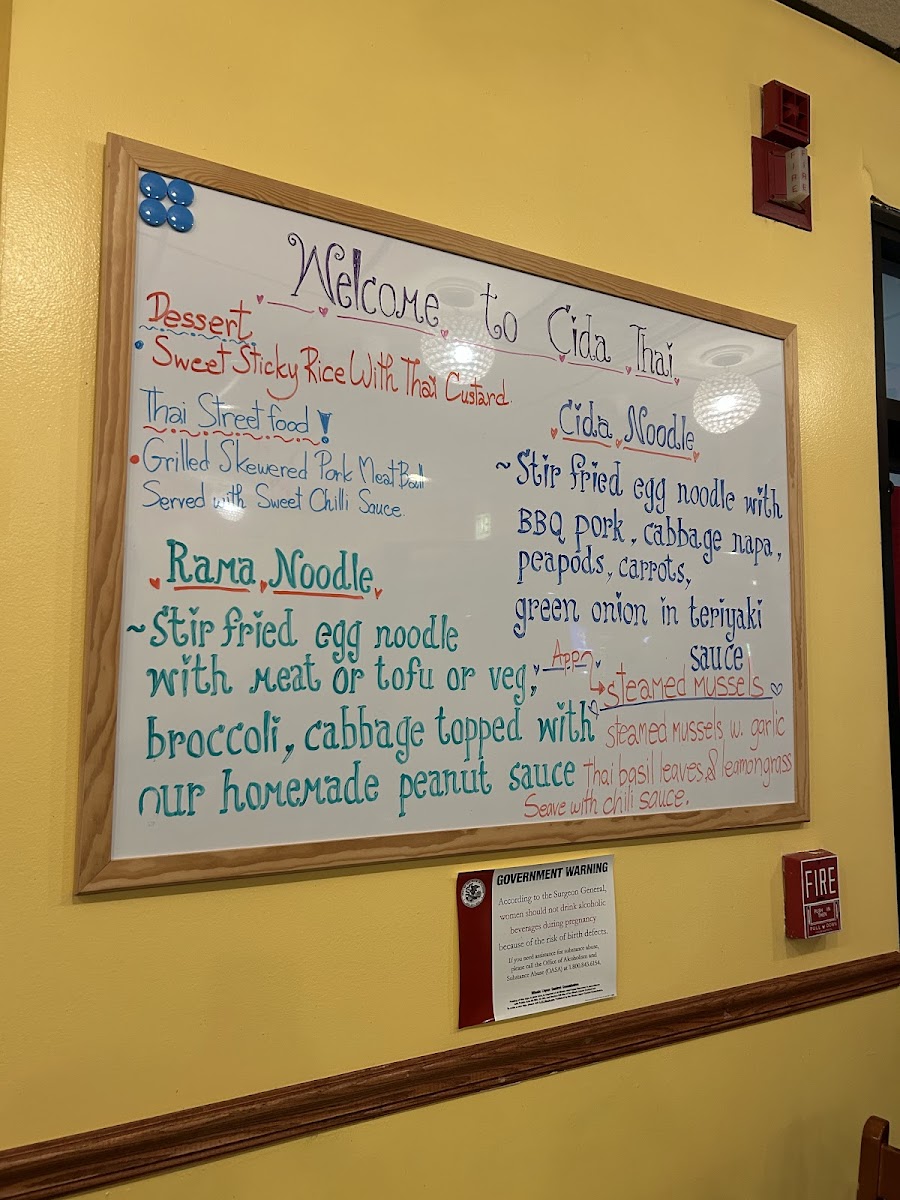 Welcome to Cida Thai
Dessert
Sweet Sticky Rice With Thai Custard
Thai Street food!
Grilled Skewered Pork Meat Ball
Served with Sweet Chilli Sauce.
Rama Noodle
~Stir fried egg noodle
with meat or tofu or veg,
broccoli, cabbage topped with
our homemade peanut sauce
Cida Noodle
~Stir fried egg noodle with
BBQ pork, cabbage napa,
peapods, carrots,
green onion in teriyaki
sauce
App
steamed mussels
steamed mussels w. garlic
thai basil leaves & leamongrass
Seave with chili sauce.
FIRE
GOVERNMENT WARNING
According to the Surgeon General,
women should not drink alcoholic
beverages during pregnancy
because of the risk of birth defects.
If you need assistance for substance abuse,
please call the Office of Alcoholism and
Substance Abuse (OASA) at 1.800.843.6154.
Illinois Liquor Control Commission
FIRE
PUSH IN
PULL DOWN